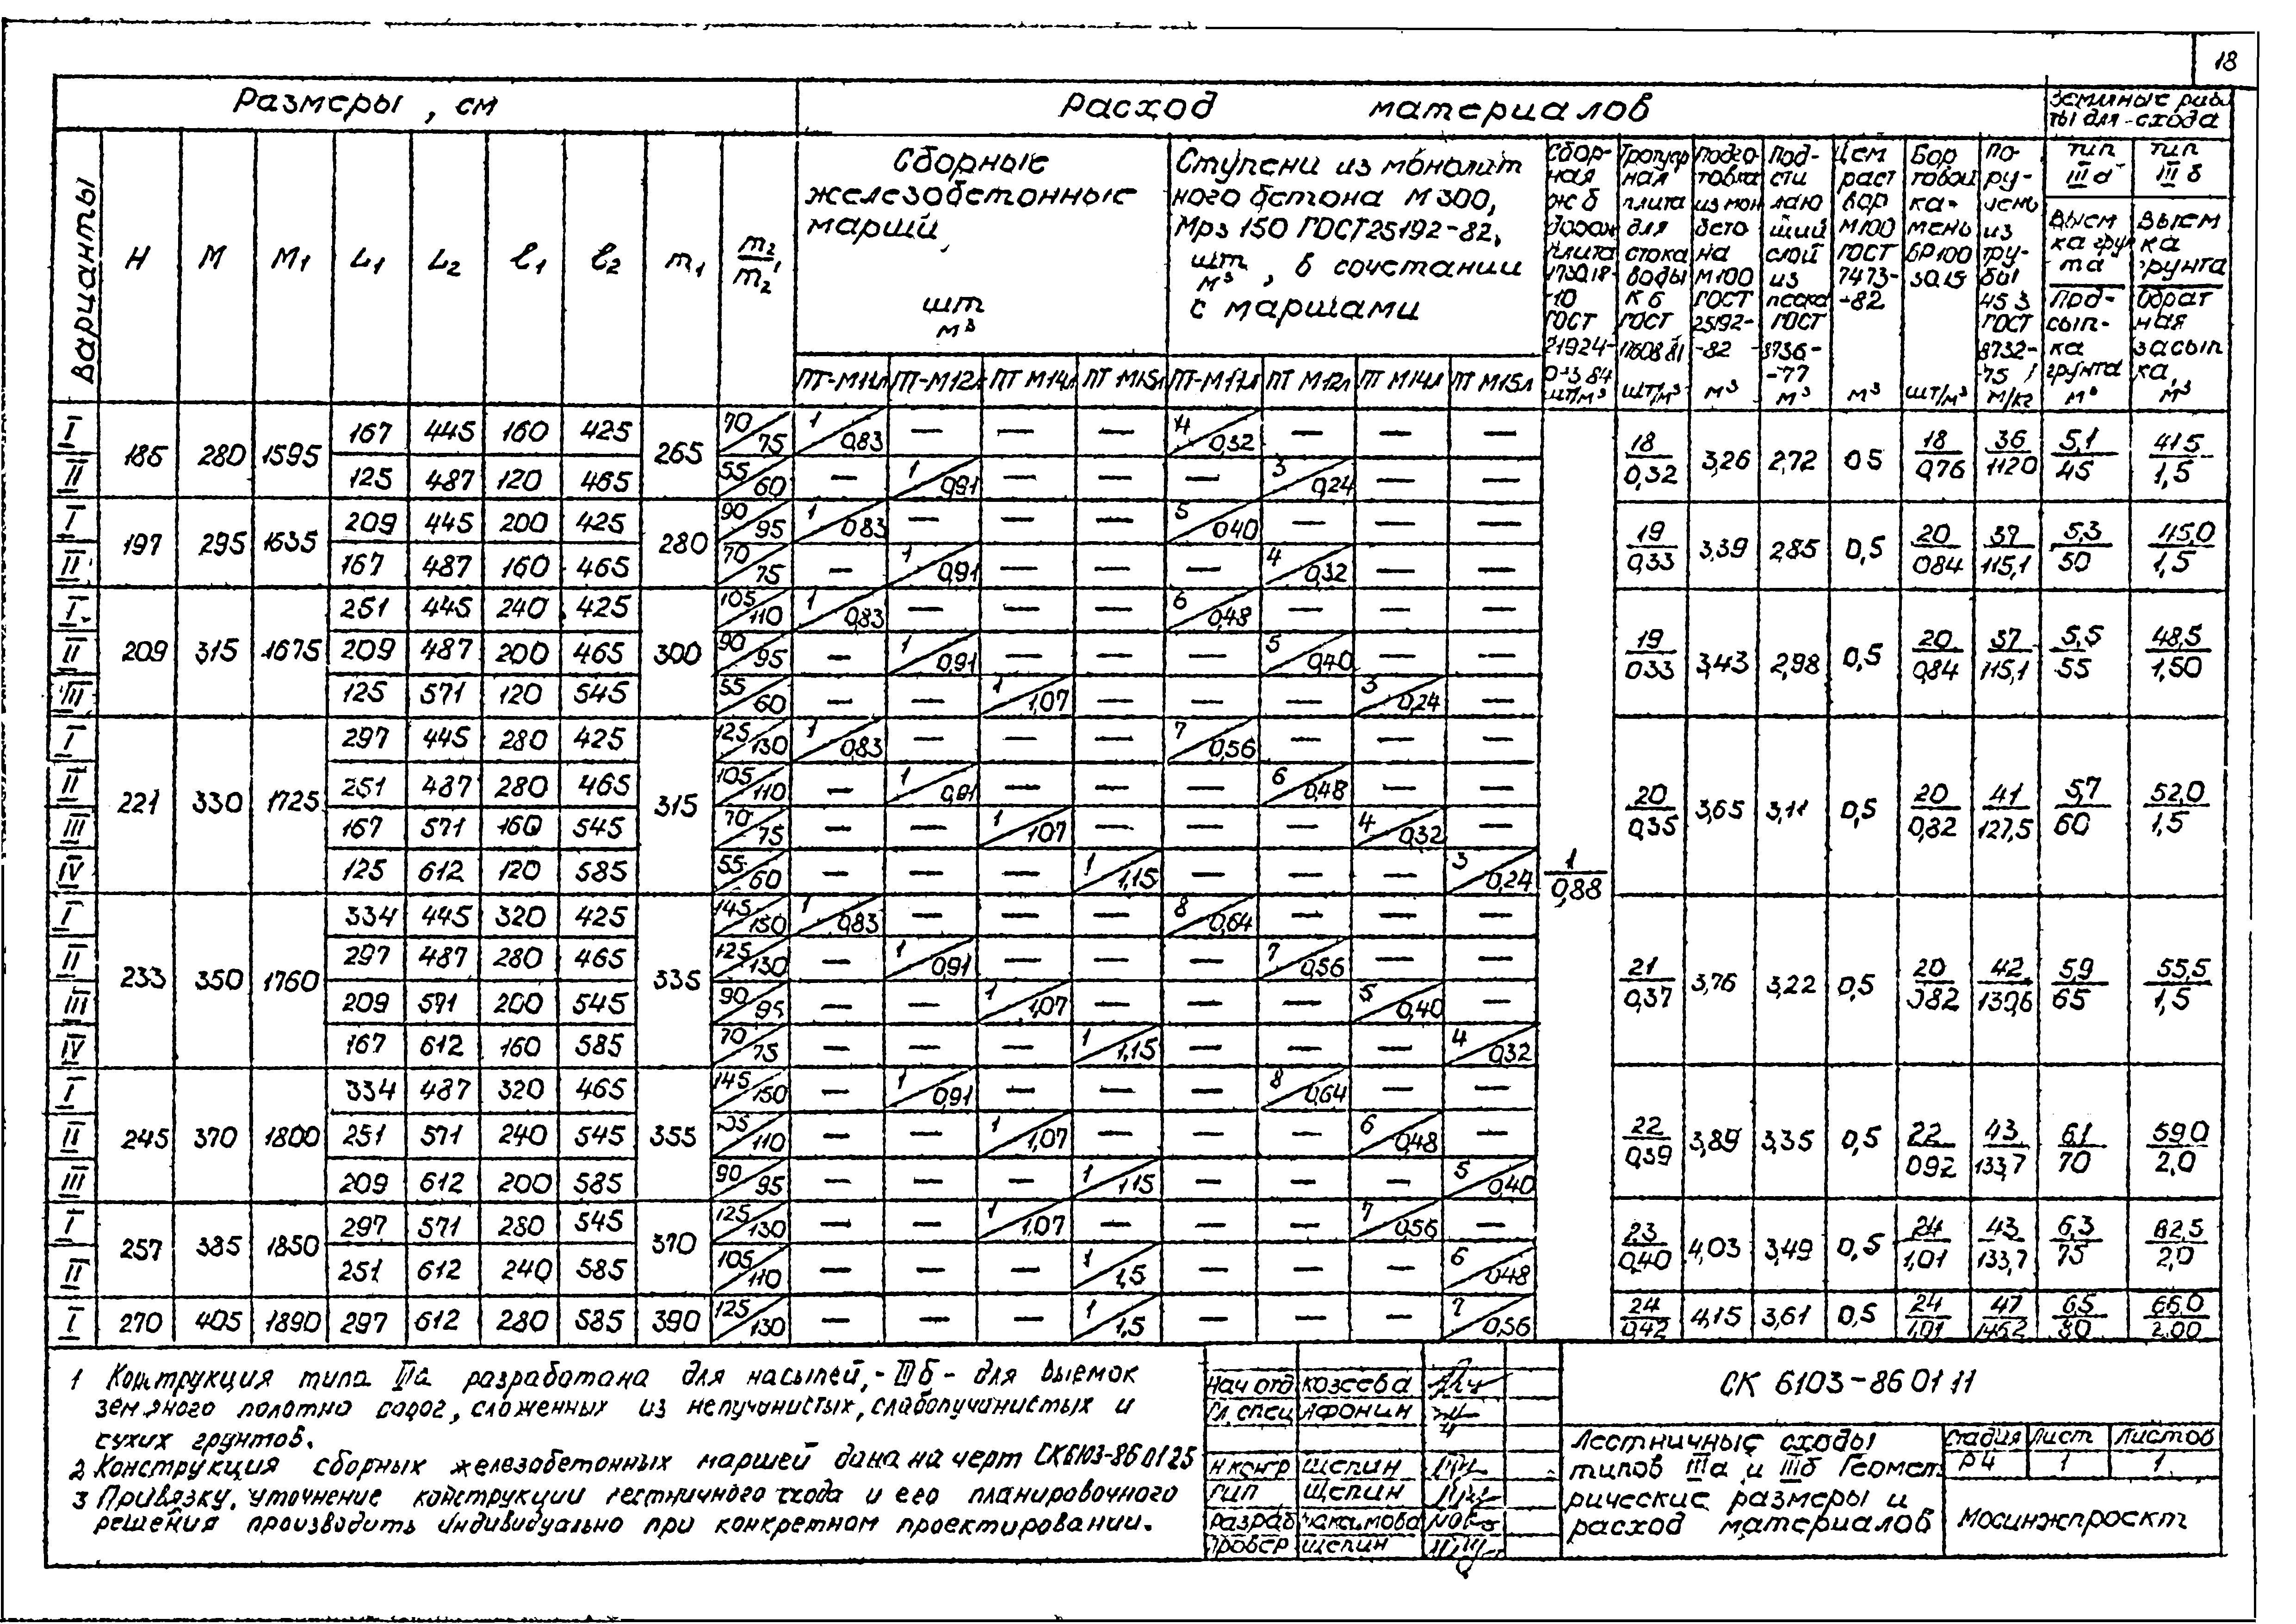 18
Размеры, см
Расход материалов
Земляные рабо
ты для схода
Варианты
H
M
M1
L1
L2
ℓ1
ℓ2
m1
m2
m2'
Сборные
железобетонные
марши,
шт
м³
Ступени из монолит
ного бетона М300,
Мрз 150 ГОСТ25192-82,
шт
м³
, в сочетании
с маршами
Сбор-
ная
ж б
дорож
плита
1П30.18-
-10
ГОСТ
21924-
0÷3 84
шт/м³
Тротуар
ная
плита
для
стока
воды
К 6
ГОСТ
17608 81
шт/м³
Подго
товка
из мон
бето
на
М100
ГОСТ
25192-
-82
м³
Под-
сти
лаю
щий
слой
из
песка
ГОСТ
8736-
-77
м³
Цем
раст
вор
М100
ГОСТ
7473-
-82
м³
Бор
товой
ка-
мень
БР100
30.15
шт/м³
По-
ру-
чень
из
тру-
бы
45 3
ГОСТ
8732-
75
м/кг
тип
III а
Выем
ка грун
та
Под-
сып-
ка
грунта
м³
тип
III б
Выем
ка
грунта
Обрат
ная
засып
ка,
м³
ПТ-М11л ПТ-М12л ПТ М14л ПТ М15л ПТ-М11л ПТ М12л ПТ М14л ПТ М15л
I 185 280 1595 167 445 160 425 265 70/75 1/0,83 — — — 4/0,32 — — — 18/0,32 3,26 2,72 0 5 18/0,76 36/1120 5,1/45 41 5/1,5
II 125 487 120 465 55/60 — 1/0,91 — — — 3/0,24 — —
I 197 295 1635 209 445 200 425 280 90/95 1/083 — — — 5/040 — — — 19/0,33 3,39 2,85 0,5 20/084 37/115,1 5,3/50 /1,5
II 167 487 160 465 70/75 — 1/0,91 — — — 4/0,32 — —
I 209 315 1675 251 445 240 425 300 105/110 1/0,83 — — — 6/0,48 — — — 19/033 3,43 2,98 0,5 20/0,84 37/115,1 5,5/55 48,5/1,50
II 209 487 200 465 90/95 — 1/0,91 — — — 5/0,40 — —
III 125 571 120 545 55/60 — — 1/1,07 — — — 3/0,24 —
I 221 330 1725 297 445 280 425 315 125/130 1/0,83 — — — 7/0,56 — — — 20/0,35 3,65 3,11 0,5 20/0,82 41/127,5 5,7/60 52,0/1,5
II 251 487 280 465 105/110 — 1/0,91 — — — 6/0,48 — —
III 167 571 160 545 70/75 — — 1/107 — — — 4/0,32 —
IV 125 612 120 585 55/60 — — — 1/1,15 — — — 3/0,24
1/0,88
I 233 350 1760 334 445 320 425 335 145/150 1/0,83 — — — 8/0,64 — — — 21/0,37 3,76 3,22 0,5 20/082 42/130,6 5,9/65 55,5/1,5
II 297 487 280 465 125/130 — 1/0,91 — — — 7/0,56 — —
III 209 571 200 545 90/95 — — 1/1,07 — — — 5/0,40 —
IV 167 612 160 585 70/75 — — — 1/1,15 — — — 4/0,32
I 245 370 1800 334 487 320 465 355 145/150 — 1/0,91 — — — 8/0,64 — — 22/0,39 3,89 3,35 0,5 22/092 43/133,7 6,1/70 59,0/2,0
II 251 571 240 545 105/110 — — 1/1,07 — — — 6/0,48 —
III 209 612 200 585 90/95 — — — 1/1,15 — — — 5/0,40
I 257 385 1850 297 571 280 545 370 125/130 — — 1/1,07 — — — 7/0,56 — 23/0,40 4,03 3,49 0,5 24/1,01 43/133,7 6,3/75 62,5/2,0
II 251 612 240 585 105/110 — — — 1/1,5 — — — 6/048
I 270 405 1890 297 612 280 585 390 125/130 — — — 1/1,5 — — — 7/0,56 24/0,42 4,15 3,61 0,5 24/1,01 47/146,2 6,5/80 66,0/2,00
1 Конструкция типа IIIа разработана для насыпей,-IIIб- для выемок
земляного полотна дорог, сложенных из непучинистых, слабопучинистых и
сухих грунтов.
2 Конструкция сборных железобетонных маршей дана на черт СК6103-86 01 25
3 Привязку, уточнение конструкции лестничного схода и его планировочного
решения производить индивидуально при конкретном проектировании.
Нач отд Козеева
Гл. спец Афонин
Н контр Щепин
ГИП Щепин
Разраб
Провер Щепин
СК 6103-86 01 11
Лестничные сходы
типов IIIа и IIIб Геомет-
рические размеры и
расход материалов
Стадия Лист Листов
РЧ 1 1
Мосинжпроект